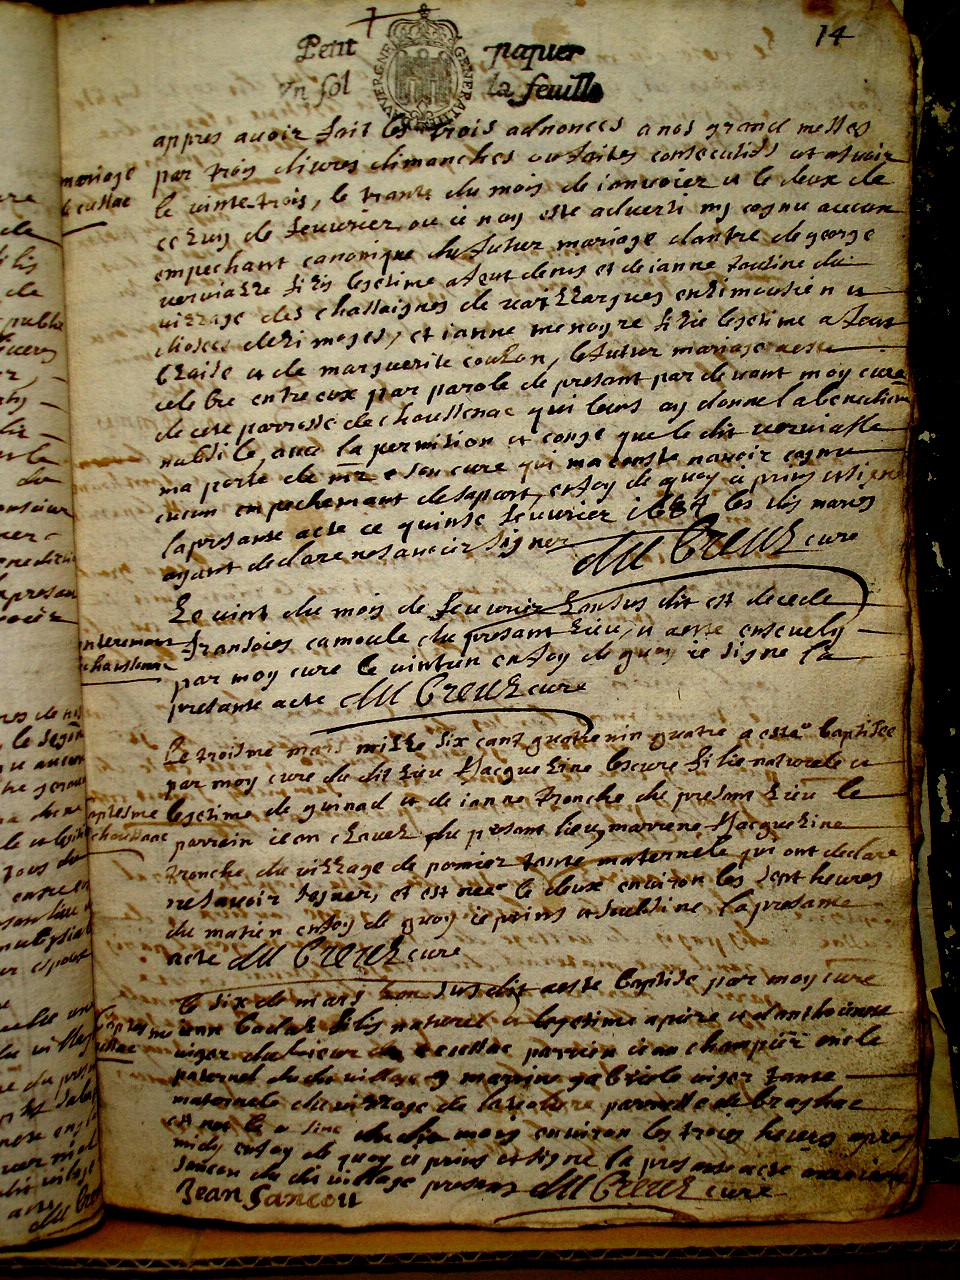 14
Petit papier
Vn sol la feuille
AUVERGNE GENERALITE
appres auoir fait les trois adnonces a nos grand messes
mariage
par trois diuers dimanches ou faites consecutifs et a
de cussac
le vinte trois, le trante du mois de ianuoier et le deux de
de feuurier ou ie nay este aduerti ny cognu aucun
empechant canonique du futur mariage dantre de george
veruialle fils legetime a feut denis et de ianne du
village des chassaignes de en limousien et
diosece de limoges, et ianne menoyre fille legetime a feut
blaise et de marguerite couzon, le futur mariage aeste
celebre entre eux par parole de presant par deuant moy cure
de cete parroesse de chaussenac qui leurs ay donne la benediction
nubtiale, auec la permision et conge que le dit veruialle
ma porte de mr son cure qui ma conste nauoir cognu
aucun empechemant de sa part, en foy de quoy ie prins et signe
la presante acte ce quinse feuurier 1684 les dis maries
ayant declare ne sauoir signer du Creux cure
Le vint du mois de feuurier lan sus dit est decede
enterement
fransoies camoule du presant lieu, et aeste enseuely
chaussenac
par moy cure le vintun en foy de quoy ie signe la
presante acte du Creux cure
Le troisme mars mille six cant quatre a estee baptisee
par moy cure du dit lieu Jacqueline lescure fille naturele et
baptesme
legetime de guinad et de ianne tronche du presant lieu le
chaussac
parrein iean du presant lieu, marrene Jacqueline
tronche du village de pomier tante maternele qui ont declare
ne sauoir signer, et est nee le deux enuiron les sept heures
du matien en foy de quoy ie prins et la presante
acte du Creux cure
le six de mars lan sus dit aeste baptise par moy cure
iean fils naturel et legetime a pierre et danthoienne
viger du de cussac parrein iean oncle
paternel du dit village et marrine gabriele viger tante
maternele du village de parroesse de braghac
est ne le dudit mois enuiron les trois heures apres
midy en foy de quoy ie prins et signe la presante acte
iancou du dit village presens du Creux cure
Jean Jancou